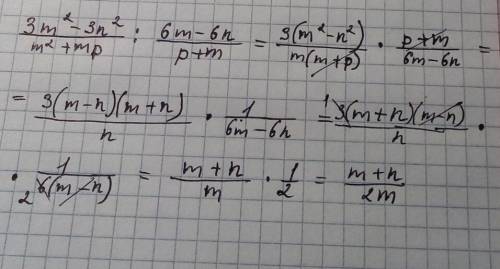 (3m² - 3n²)/(m² + mp) : (6m - 6n)/(p + m) = 3(m² - n²)/(m(m + p)) · (p + m)/(6m - 6n) =
= 3(m - n)(m + n)/n · 1/(6m - 6n) = ¹3(m + n)(m - n)/n ·
· 1/(₂6(m - n)) = (m + n)/m · 1/2 = (m + n)/(2m)